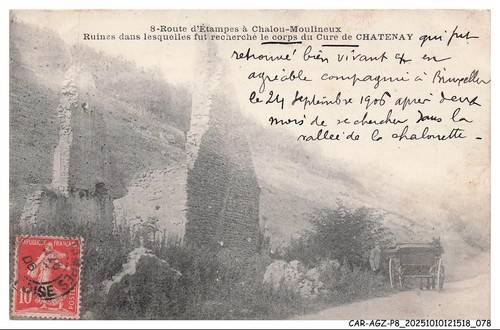 8-Route d'Étampes à Chalou-Moulineux
Ruines dans lesquelles fut recherché le corps du Curé de CHATENAY qui fut
retrouvé bien vivant et en
agréable compagnie à Bruxelles
le 24 Septembre 1906 après deux
mois de se chercher dans la
vallée de la chalouette -
POSTES
10
CAR-AGZ-P8_20251010121518_078